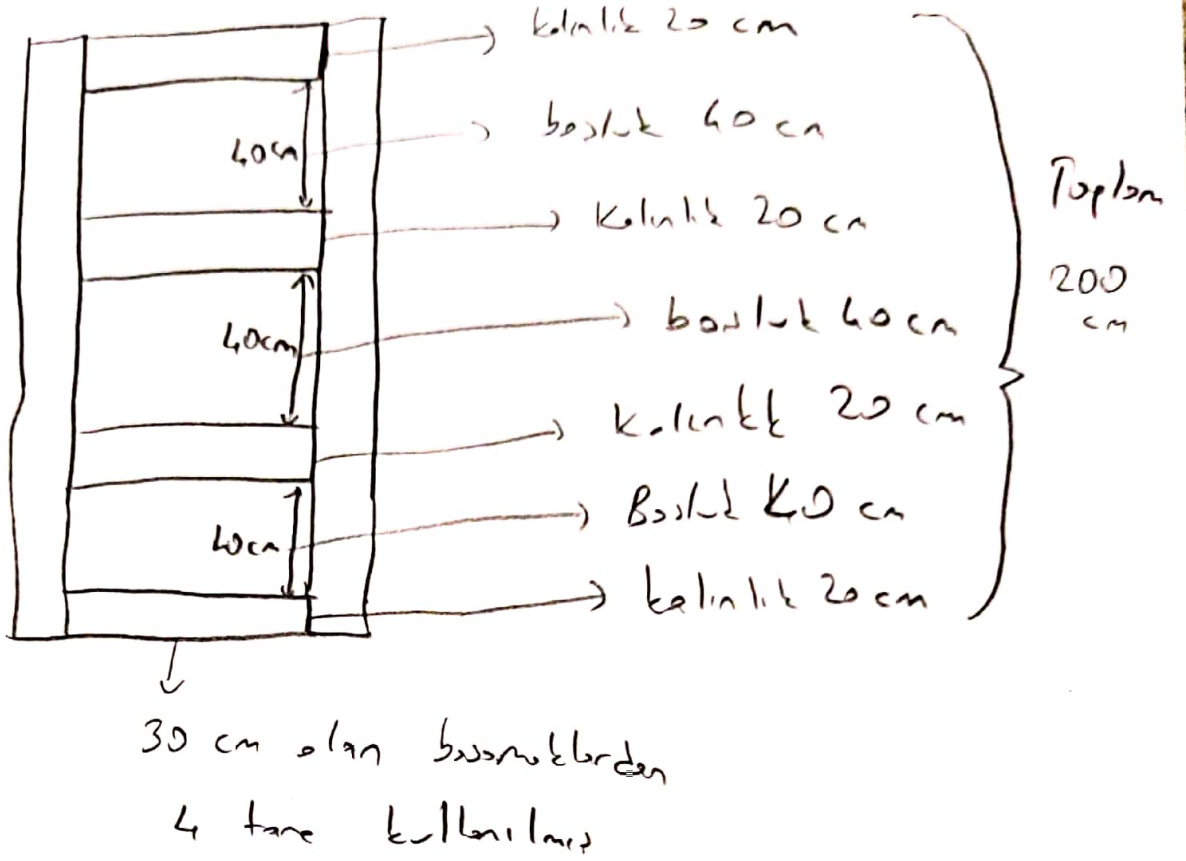 kalınlık 20 cm
40cm
boşluk 40 cm
Kalınlık 20 cm
40cm
boşluk 40 cm
Kalınlık 20 cm
40cm
Boşluk 40 cm
kalınlık 20 cm
Toplam
200
cm
30 cm olan basamaklardan
4 tane kullanılmış